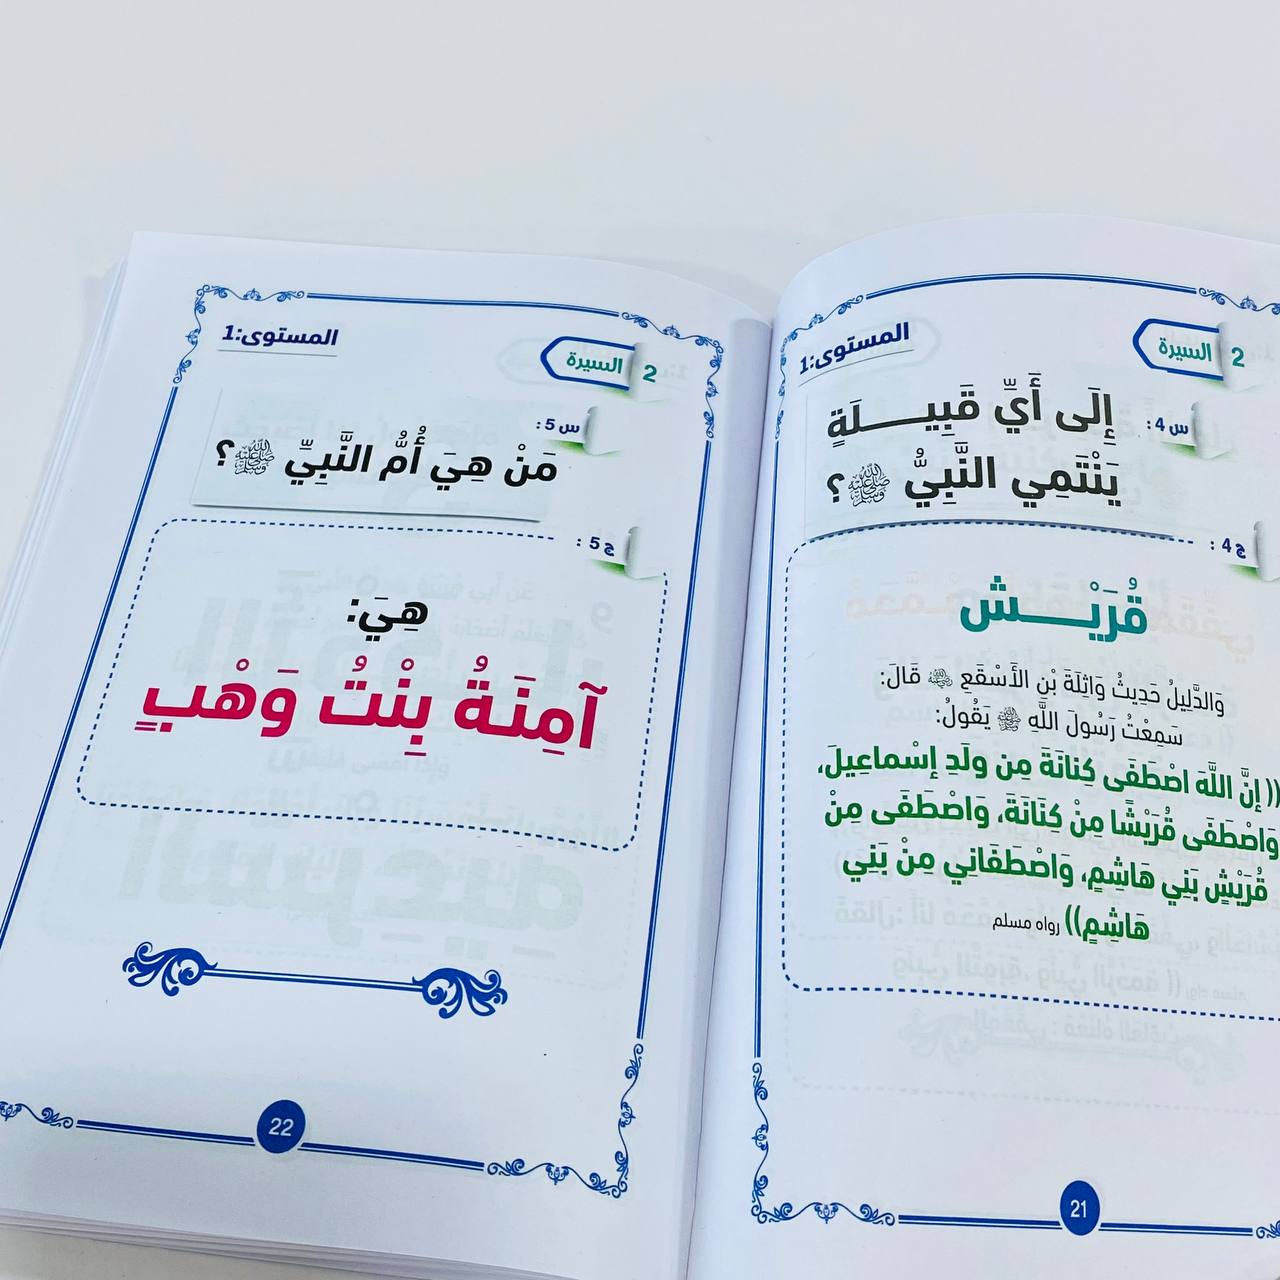 2 السيرة
المستوى:1
س 4 :
إِلَى أَيِّ قَبِيـــــلَةٍ
يَنْتَمِي النَّبِيُّ ﷺ ؟
ج 4 :
قُرَيْـــــش
وَالدَّلِيلُ حَدِيثُ وَاثِلَةَ بْنِ الأَسْقَعِ قَالَ:
سَمِعْتُ رَسُولَ اللَّهِ ﷺ يَقُولُ:
(( إِنَّ اللَّهَ اصْطَفَى كِنَانَةَ مِن وِلَدِ إِسْماعِيلَ،
وَاصْطَفَى قُرَيْشًا مِنْ كِنَانَةَ، وَاصْطَفَى مِنْ
قُرَيْشٍ بَنِي هَاشِمٍ، وَاصْطَفَانِي مِنْ بَنِي
هَاشِمٍ)) رواه مسلم
21
2 السيرة
المستوى:1
س 5 :
مَنْ هِيَ أُمُّ النَّبِيِّ ﷺ ؟
ج 5 :
هِيَ:
آمِنَةُ بِنْتُ وَهْبٍ
22